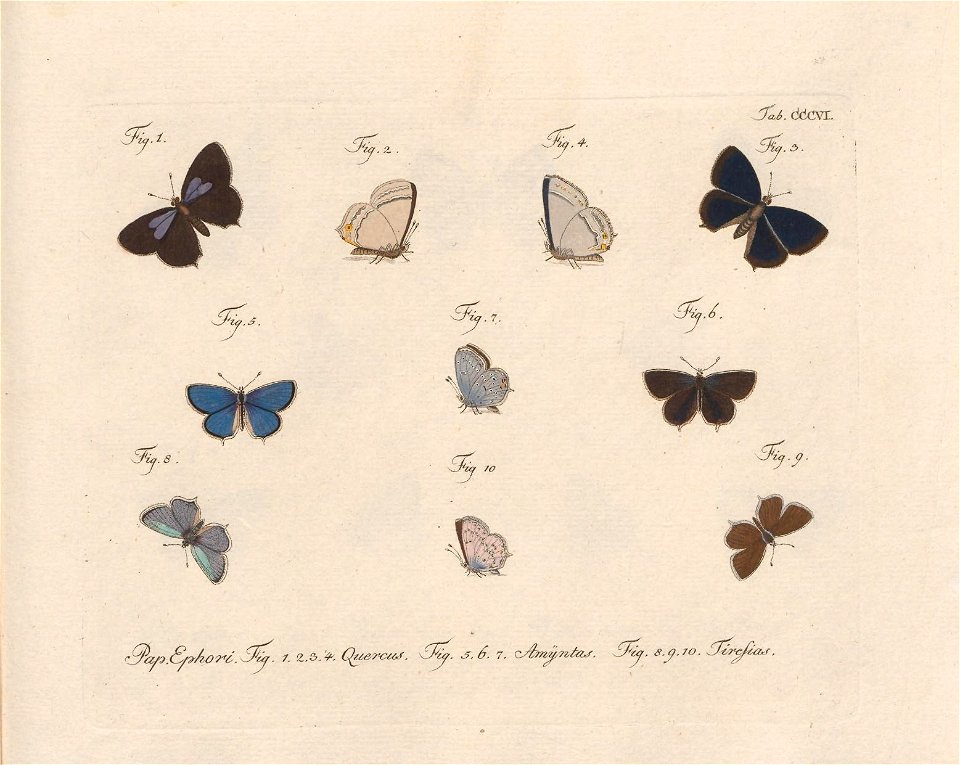 Tab. CCCVI.
Fig. 1.
Fig. 2.
Fig. 4.
Fig. 3.
Fig. 5.
Fig. 7.
Fig. 6.
Fig. 8.
Fig 10
Fig. 9.
Pap. Ephori. Fig. 1. 2. 3. 4. Quercus. Fig. 5. 6. 7. Amÿntas. Fig. 8. 9. 10. Tiresias.